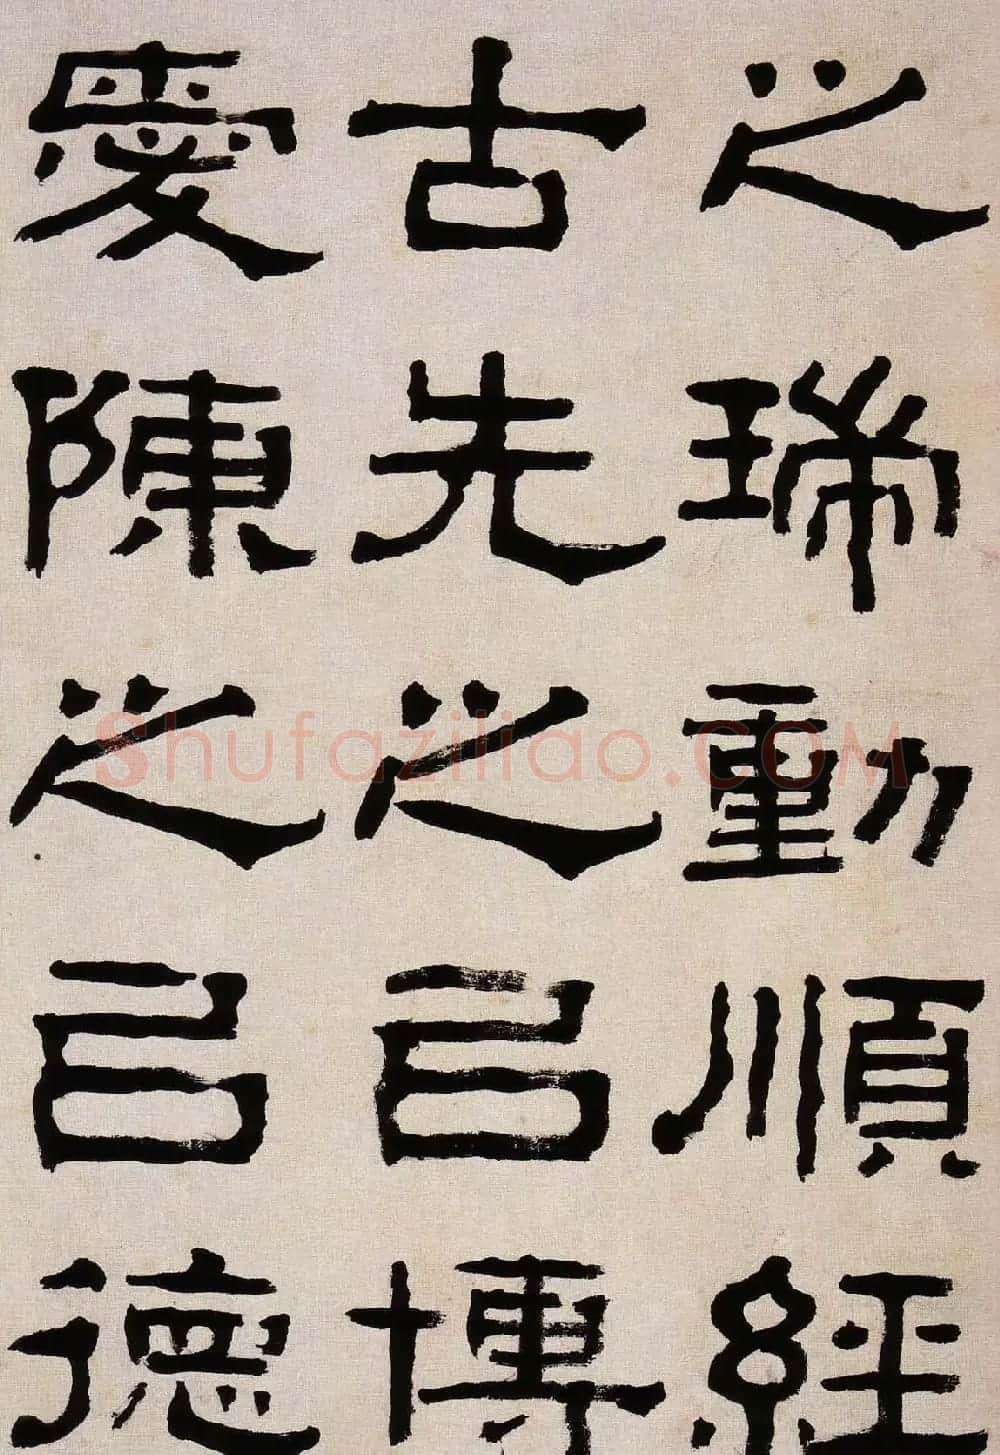 之瑞動順經
古先之㠯博
愛陳之㠯德
Shufaziliao.COM